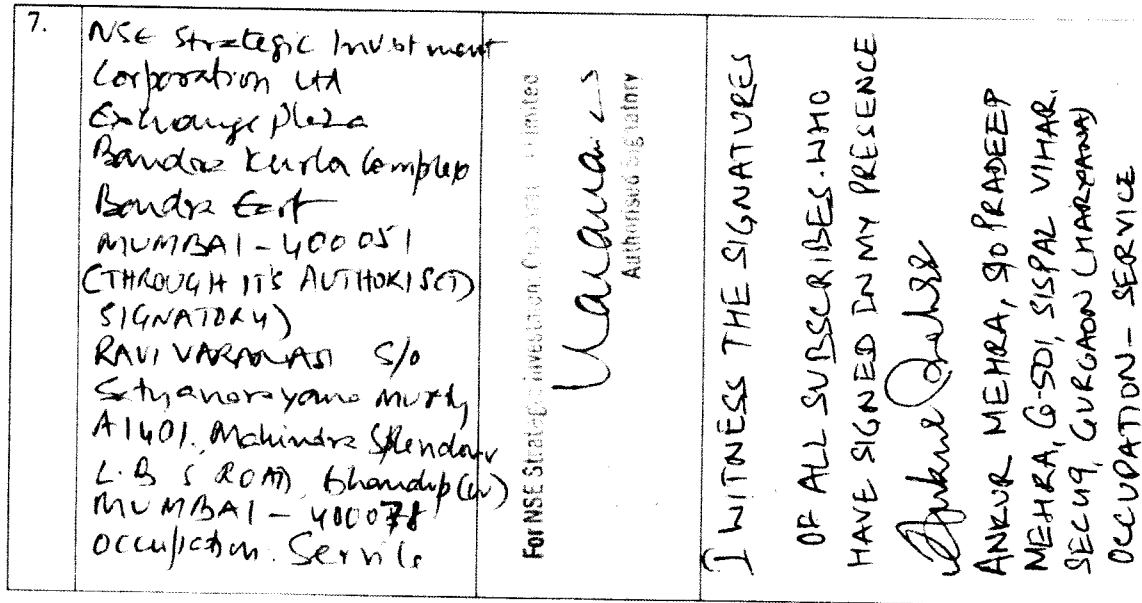 7.
NSE Strategic Investment
Corporation Ltd
Exchange Plaza
Bandra Kurla Complex
Bandra East
MUMBAI - 400051
(THROUGH IT'S AUTHORISED
SIGNATORY)
RAVI VARANASI S/o
Satyanarayana Murthy
A1401, Mahindra Splendour
L.B S ROAD, Bhandup (W)
MUMBAI - 400078
Occupation. Service
For NSE Strategic Investment Corporation Limited
Authorised Signatory
I WITNESS THE SIGNATURES
OF ALL SUBSCRIBES. WHO
HAVE SIGNED IN MY PRESENCE
ANKUR MEHRA, S/O PRADEEP
MEHRA, G-501, SISPAL VIHAR.
SEC49, GURGAON (HARYANA)
OCCUPATION - SERVICE